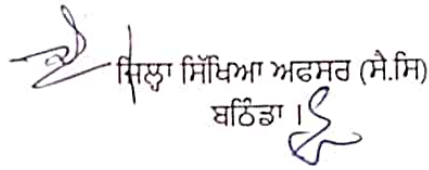 ਜਿਲ੍ਹਾ ਸਿੱਖਿਆ ਅਫਸਰ (ਸੇ.ਸਿ)
ਬਠਿੰਡਾ ।